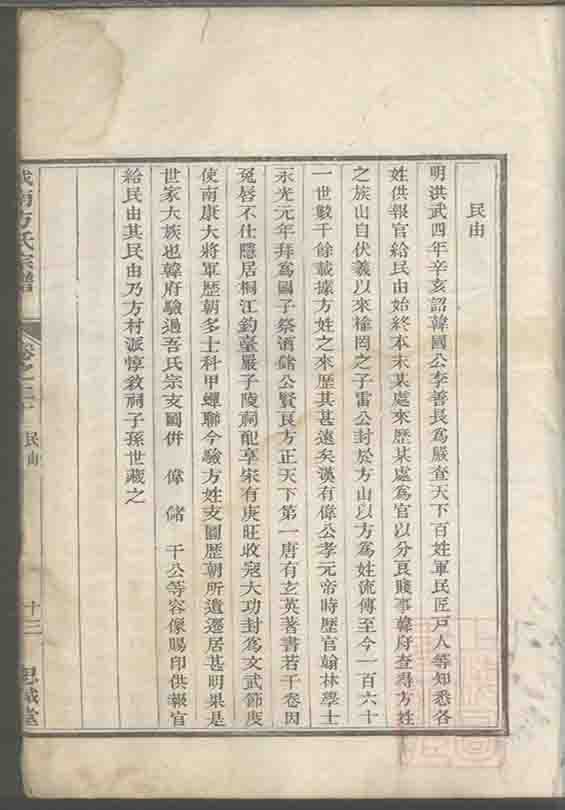 民由
明洪武四年辛亥詔韓國公李善長爲嚴查天下百姓軍民匠戶人等知悉各
姓供報官給民由始終本末某處來歷某處爲官以分良賤事韓府查得方姓
之族山自伏羲以來榆罔之子雷公封於方山以方爲姓流傳至今一百六十
一世數千餘載據方姓之來歷其甚遠矣漢有偉公孝元帝時歷官翰林學士
永光元年拜爲國子祭酒儲公賢良方正天下第一唐有玄英著書若干卷因
兔唇不仕隱居桐江釣臺嚴子陵祠配享宋有庚旺收寇大功封爲文武節度
使南康大將軍歷朝多士科甲蟬聯今驗方姓支圖歷朝所遺遷居甚明果是
世家大族也韓府驗過吾氏宗支圖併 偉 儲 干公等容像賜印供報官
給民由其民由乃方村派惇敘祠子孫世藏之
南方氏宗譜 卷之二十 民由 十三 思誠堂